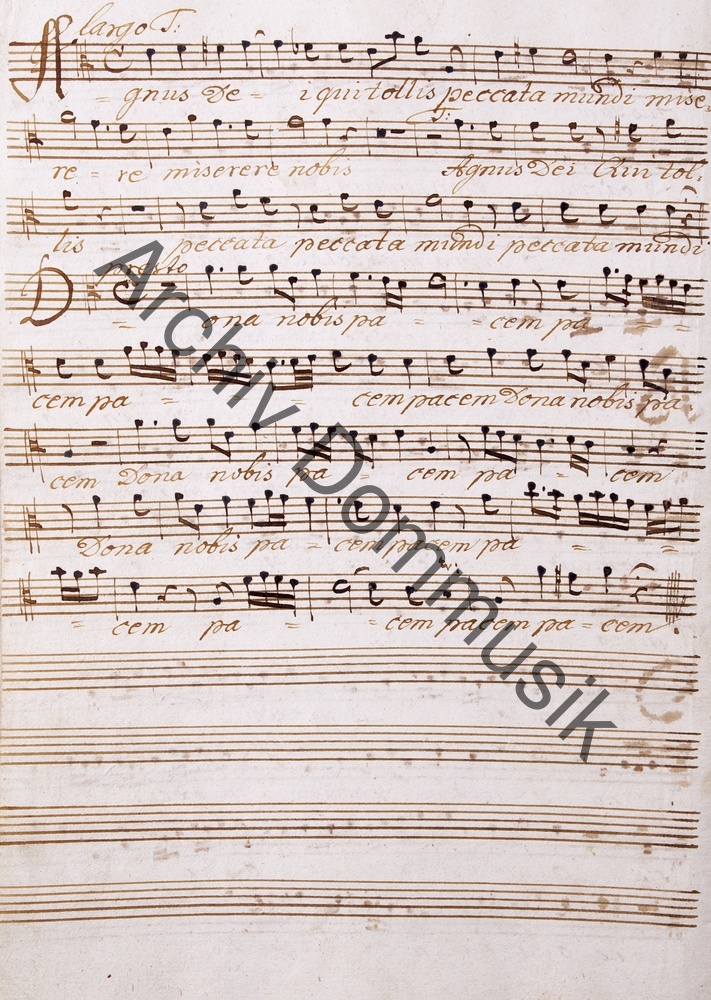 largo T:
Agnus De - i qui tollis peccata mundi mise-
T:
re - re miserere nobis Agnus Dei Qui tol-
lis peccata peccata mundi peccata mundi
presto
Dona nobis pa - cem pa
cem pa - cem pacem Dona nobis pa-
cem Dona nobis pa - cem pa - cem
Dona nobis pa - cem pacem pa
cem pa - cem pacem pa - cem
Archiv Dommusik